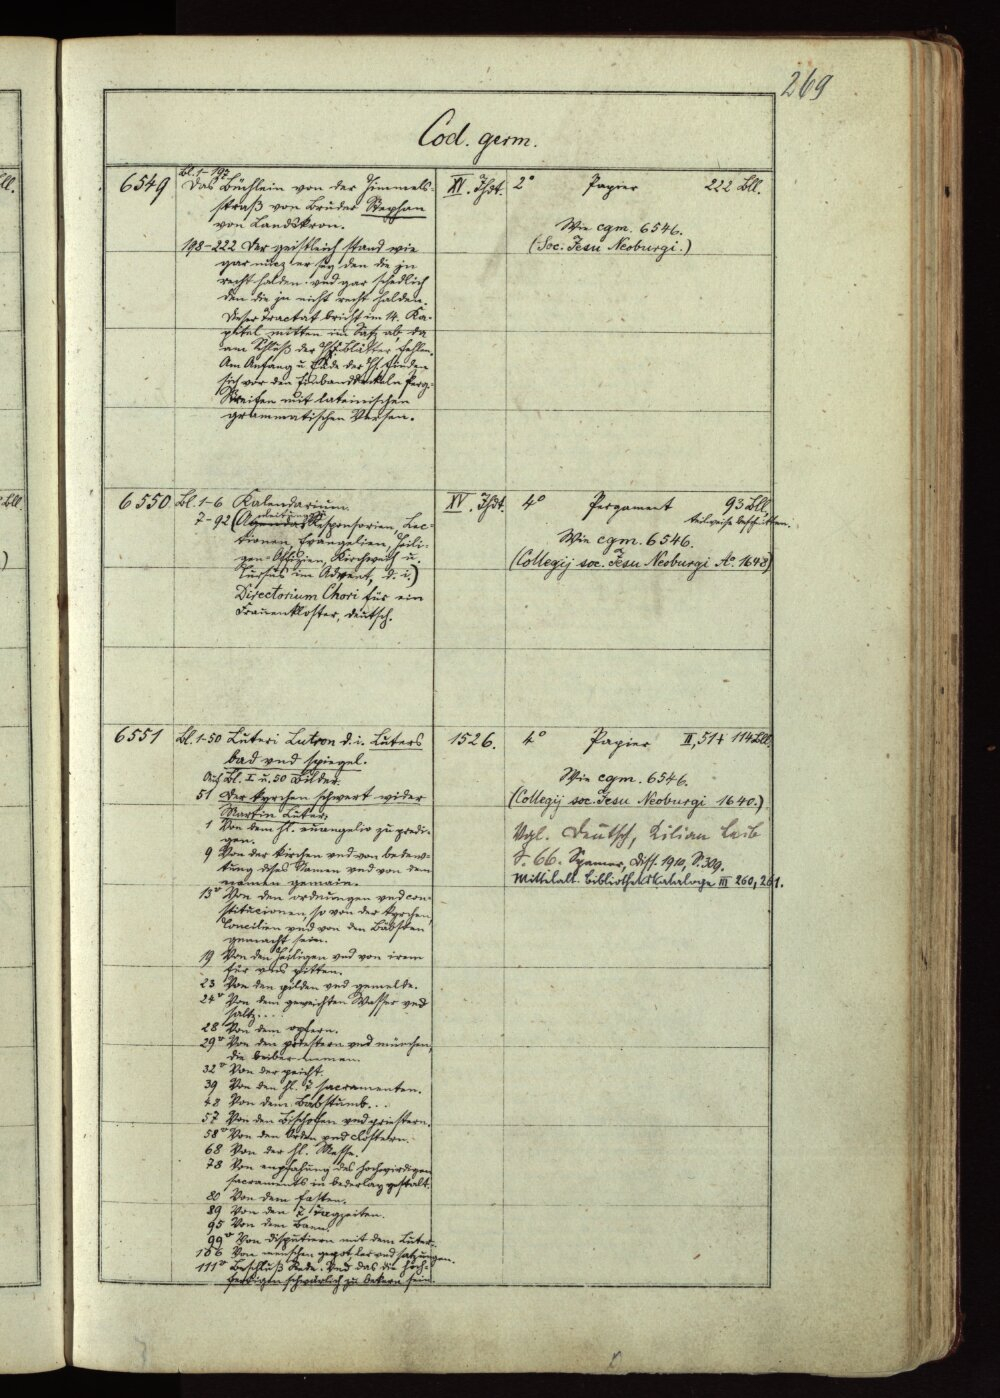 269
Cod. germ.
6549
Bl. 1–197
Das Büchlein von der Himmels-
straß von Bruder Stephan
von Landskron.
198–222 Der geistlich stand wie
gar nucz er sey den die jn
recht halden vnd gar schedlich
den die jn nicht recht halden.
Dieser Tractat bricht im 14. Ka-
pitel mitten im Satz ab, da
am Schluß der Hs. Blätter fehlen.
Am Anfang u. Ende der Hs. finden
sich vor den Einbanddeckeln Perg.
Streifen mit lateinischen
grammatischen Versen.
XV. Jhdt.
2° Papier 222 Bll.
Wie cgm. 6546.
(Soc. Jesu Neoburgi.)
6550
Bl. 1–6 Kalendarium.
7–92 (Responsorien, Lec-
tionen, Evangelien, Heili-
gen-Offizien, Kirchweih u.
Cursus im Advent, d. i.)
Directorium Chori für ein
Frauenkloster, deutsch.
XV. Jhdt.
4° Pergament 93 Bll.
teilweise beschnitten.
Wie cgm. 6546.
(Collegij soc. Jesu Neoburgi A° 1648)
6551
Bl. 1-50 Luteri Lutron d. i. Luters
bad vnd spiegel.
Auf Bl. I u. 50 Bilder.
51 Der kyrchen schwert wider
Martin Luter.
1 Von dem hl. euangelio zu predi-
gen.
9 Von der kirchen vnd von bedew-
tung dises Namen vnd von dem
namen gemain.
13v Von den ordnungen vnd con-
stitucionen, so von der kyrchen,
Concilien vnd von den Bäbsten
gemacht sein.
19 Von den Heiligen vnd von irem
für vns pitten.
23 Von den pilden vnd gemelde.
24v Von dem geweichten Wasser vnd
saltz....
28 Von dem opfern.
29v Von den priestern vnd münchen,
die weiber nemen.
32v Von der peicht.
39 Von den hl. 7 sacramenten.
48 Von dem Babstumb...
57 Von den Bischofen vnd priestern.
58v Von den Orden vnd Clöstern.
68 Von der hl. Messe.
78 Von empfahung des hochwirdigen
sacraments in bederlay gestalt.
80 Von dem fasten.
89 Von den 7 tagzeiten.
95 Von dem Bann.
99v Von disputiern mit dem Luter..
106 Von menschen gepot, ler vnd satzungen.
111v Beschluß Rede. Vnd das die hoch-
fertigen schwärlich zu bekern sein.
1526.
4° Papier II, 51 + 114 Bll.
Wie cgm. 6546.
(Collegij soc. Jesu Neoburgi 1640.)
Vgl. Deutsch, Kilian Leib
S. 66. Spamer, Diss. 1910, S. 309.
Mittelalt. Bibliothekskataloge III 260, 261.